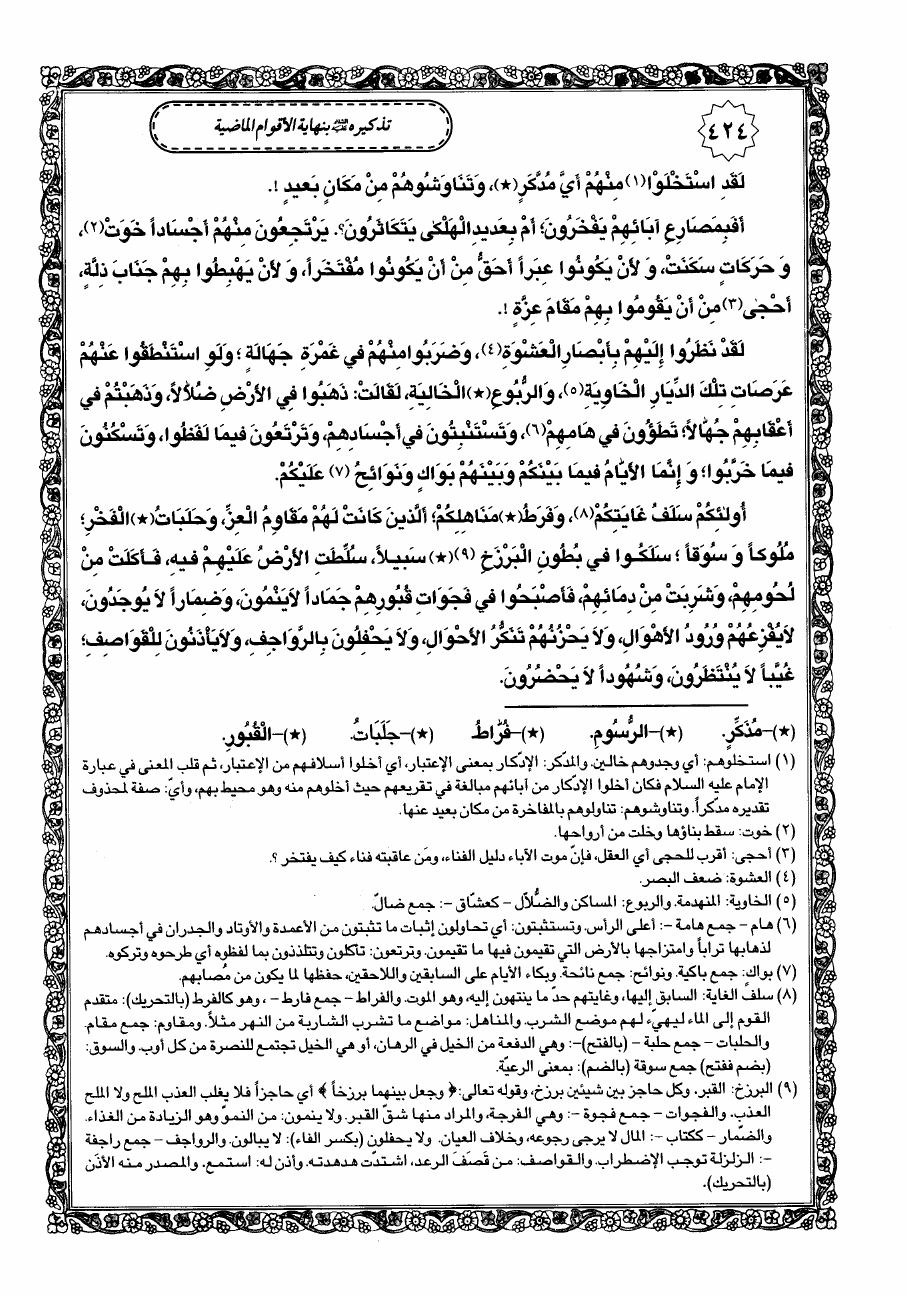 ٤٢٤
تذكيره ﷺ بنهاية الأقوام الماضية
لَقَدِ اسْتَخْلَوْا(١) مِنْهُمْ أَيَّ مُدَّكَرٍ(★)، وَتَنَاوَشُوهُمْ مِنْ مَكَانٍ بَعِيدٍ !.
أَفَبِمَصَارِعِ آبَائِهِمْ يَفْخَرُونَ؛ أَمْ بِعَدِيدِ الْهَلْكَى يَتَكَاثَرُونَ؟. يَرْتَجِعُونَ مِنْهُمْ أَجْسَاداً خَوَتْ(٢)،
وَ حَرَكَاتٍ سَكَنَتْ، وَ لأَنْ يَكُونُوا عِبَراً أَحَقُّ مِنْ أَنْ يَكُونُوا مُفْتَخَراً، وَ لأَنْ يَهْبِطُوا بِهِمْ جَنَابَ ذِلَّةٍ،
أَحْجَى(٣) مِنْ أَنْ يَقُومُوا بِهِمْ مَقَامَ عِزَّةٍ !.
لَقَدْ نَظَرُوا إِلَيْهِمْ بِأَبْصَارِ الْعَشْوَةِ(٤)، وَضَرَبُوا مِنْهُمْ في غَمْرَةِ جَهَالَةٍ ؛ وَلَوِ اسْتَنْطَقُوا عَنْهُمْ
عَرَصَاتِ تِلْكَ الدِّيَارِ الْخَاوِيَةِ(٥)، وَالرُّبُوعِ(★) الْخَالِيَةِ، لَقَالَتْ: ذَهَبُوا فِي الأَرْضِ ضُلاَّلاً، وَذَهَبْتُمْ في
أَعْقَابِهِمْ جُهَّالاً؛ تَطَؤُونَ في هَامِهِمْ(٦)، وَتَسْتَنْبِتُونَ في أَجْسَادِهِمْ، وَتَرْتَعُونَ فيمَا لَفَظُوا، وَتَسْكُنُونَ
فيمَا خَرَّبُوا؛ وَ إِنَّمَا الأَيَّامُ فيمَا بَيْنَكُمْ وَبَيْنَهُمْ بَوَاكٍ وَنَوَائِحُ(٧) عَلَيْكُمْ.
أُولَئِكُمْ سَلَفُ غَايَتِكُمْ(٨)، وَفَرَطُ(★) مَنَاهِلِكُمْ؛ اَلَّذينَ كَانَتْ لَهُمْ مَقَاوِمُ الْعِزِّ، وَحَلَبَاتُ(★) الْفَخْرِ؛
مُلُوكاً وَ سُوَقاً ؛ سَلَكُوا في بُطُونِ الْبَرْزَخِ(٩)(★) سَبيلاً، سُلِّطَتِ الأَرْضُ عَلَيْهِمْ فيهِ، فَأَكَلَتْ مِنْ
لُحُومِهِمْ، وَشَرِبَتْ مِنْ دِمَائِهِمْ، فَأَصْبَحُوا في فَجَوَاتِ قُبُورِهِمْ جَمَاداً لاَ يَنْمُونَ، وَضِمَاراً لاَ يُوجَدُونَ،
لاَ يُفْزِعُهُمْ وُرُودُ الأَهْوَالِ، وَلاَ يَحْزُنُهُمْ تَنَكُّرُ الأَحْوَالِ، وَلاَ يَحْفِلُونَ بِالرَّوَاجِفِ، وَلاَ يَأْذَنُونَ لِلْقَوَاصِفِ؛
غُيَّباً لاَ يُنْتَظَرُونَ، وَشُهُوداً لاَ يَحْضُرُونَ.
(★)-مُذَكِّرٍ. (★)-الرُّسُومِ. (★)-فُرَّاطُ (★)-جَلَبَاتُ. (★)-الْقُبُورِ.
(١) استخلوهم: أي وجدوهم خالين. والمدّكر: الإدّكار بمعنى الإعتبار، أي أخلوا أسلافهم من الإعتبار، ثم قلب المعنى في عبارة
الإمام عليه السلام فكان أخلوا الإدّكار من آبائهم مبالغة في تقريعهم حيث أخلوهم منه وهو محيط بهم، وأيّ: صفة لمحذوف
تقديره مدّكراً. وتناوشوهم: تناولوهم بالمفاخرة من مكان بعيد عنها.
(٢) خوت: سقط بناؤها وخلت من أرواحها.
(٣) أحجى: أقرب للحجى أي العقل، فإنّ موت الآباء دليل الفناء، ومَن عاقبته فناء كيف يفتخر ؟.
(٤) العشوة: ضعف البصر.
(٥) الخاوية: المنهدمة. والربوع: المساكن والضُّلاّل - كعشّاق -: جمع ضالّ.
(٦) هام - جمع هامة -: أعلى الرأس. وتستثبتون: أي تحاولون إثبات ما تثبتون من الأعمدة والأوتاد والجدران في أجسادهم
لذهابها تراباً وامتزاجها بالأرض التي تقيمون فيها ما تقيمون. وترتعون: تأكلون وتتلذذون بما لفظوه أي طرحوه وتركوه.
(٧) بواكٍ: جمع باكية. ونوائح: جمع نائحة. وبكاء الأيام على السابقين واللاحقين، حفظها لما يكون من مُصابهم.
(٨) سلف الغاية: السابق إليها، وغايتهم حدّ ما ينتهون إليه، وهو الموت. والفراط - جمع فارط - ، وهو كالفرط (بالتحريك): متقدم
القوم إلى الماء ليهيّء لهم موضع الشرب. والمناهل: مواضع ما تشرب الشاربة من النهر مثلاً. ومقاوم: جمع مقام.
والحلبات - جمع حلبة - (بالفتح)-: وهي الدفعة من الخيل في الرهان، أو هي الخيل تجتمع للنصرة من كل أوب. والسوق:
(بضم ففتح) جمع سوقة (بالضم): بمعنى الرعيّة.
(٩) البرزخ: القبر. وكل حاجز بين شيئين برزخ، وقوله تعالى:﴿ وجعل بينهما برزخاً ﴾ أي حاجزاً فلا يغلب العذب الملح ولا الملح
العذب. والفجوات - جمع فجوة -: وهي الفرجة، والمراد منها شقّ القبر. ولا ينمون: من النموّ وهو الزيادة من الغذاء.
والضّمار - ككتاب -: المال لا يرجى رجوعه، وخلاف العيان. ولا يحفلون (بكسر الفاء): لا يبالون. والرواجف - جمع راجفة
-: الزلزلة توجب الإضطراب. والقواصف: من قَصَفَ الرعد، اشتدّت هدهدته. وأذن له: استمع، والمصدر منه الأذَن
(بالتحريك).